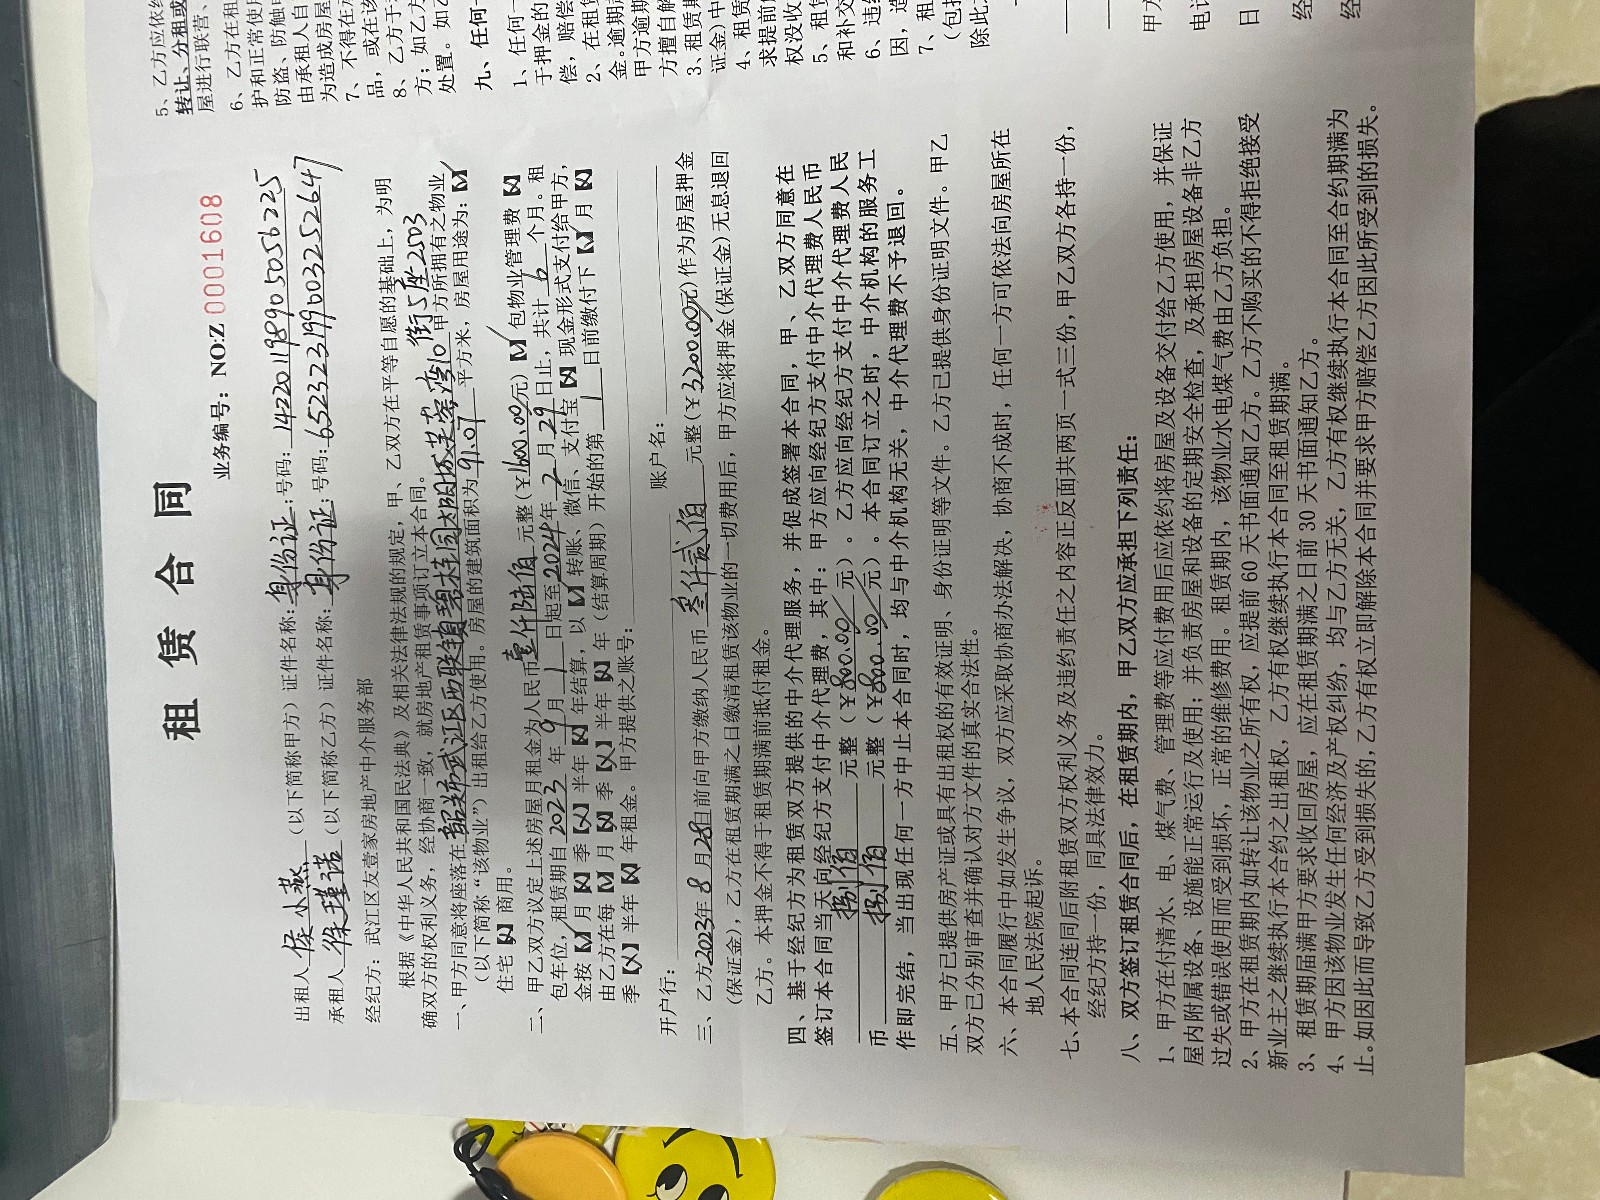 租 赁 合 同
业务编号：NO:Z 0001608
出租人 侯小燕 (以下简称甲方) 证件名称: 身份证 ;号码:
承租人 徐瑾诺 (以下简称乙方) 证件名称: 身份证 ;号码:
经纪方：武江区友壹家房地产中介服务部
根据《中华人民共和国民法典》及相关法律法规的规定，甲、乙双方在平等自愿的基础上，为明
确双方的权利义务，经协商一致，就房地产租赁事项订立本合同。
一、甲方同意将座落在 韶关市武江区西联镇碧桂园太阳城芙蓉湾10街5座2503 甲方所拥有之物业
(以下简称“该物业”) 出租给乙方使用。房屋的建筑面积为 91.01 平方米，房屋用途为:【√】
住宅【×】商用。
二、甲乙双方议定上述房屋月租金为人民币 壹仟陆佰 元整 (￥1600.00元)【√】包物业管理费【×】
包车位，租赁期自 2023 年 9 月 1 日起至 2024 年 2 月 29 日止，共计 6 个月。租
金按【√】月【×】季【×】半年【×】年结算，以【√】转账、微信、支付宝【×】现金形式支付给甲方，
由乙方在每【√】月【×】季【×】半年【×】年 (结算周期) 开始的第 1 日前缴付下【√】月【×】
季【×】半年【×】年租金。甲方提供之账号：
开户行： 账户名：
三、乙方2023年 8 月28日前向甲方缴纳人民币 叁仟贰佰 元整 (￥3200.00元)作为房屋押金
(保证金)，乙方在租赁期满之日缴清租赁该物业的一切费用后，甲方应将押金(保证金)无息退回
乙方。本押金不得于租赁期满前抵付租金。
四、基于经纪方为租赁双方提供的中介代理服务，并促成签署本合同，甲、乙双方同意在
签订本合同当天向经纪方支付中介代理费，其中：甲方应向经纪方支付中介代理费人民币
捌佰 元整 (￥800.00元) 。乙方应向经纪方支付中介代理费人民
币 捌佰 元整 (￥800.00元) 。本合同订立之时，中介机构的服务工
作即完结，当出现任何一方中止本合同时，均与中介机构无关，中介代理费不予退回。
五、甲方已提供房产证或具有出租权的有效证明、身份证明等文件。乙方已提供身份证明文件。甲乙
双方已分别审查并确认对方文件的真实合法性。
六、本合同履行中如发生争议，双方应采取协商办法解决，协商不成时，任何一方可依法向房屋所在
地人民法院起诉。
七、本合同连同后附租赁双方权利义务及违约责任之内容正反面共两页一式三份，甲乙双方各持一份，
经纪方持一份，同具法律效力。
八、双方签订租赁合同后，在租赁期内，甲乙双方应承担下列责任：
1、甲方在付清水、电、煤气费、管理费等应付费用后应依约将房屋及设备交付给乙方使用，并保证
屋内附属设备、设施能正常运行及使用；并负责房屋和设备的定期安全检查，及承担房屋设备非乙方
过失或错误使用而受到损坏，正常的维修费用。租赁期内，该物业水电煤气费由乙方负担。
2、甲方在租赁期内如转让该物业之所有权，应提前 60 天书面通知乙方。乙方不购买的不得拒绝接受
新业主之继续执行本合约之出租权，乙方有权继续执行本合同至租赁期满。
3、租赁期届满甲方要求收回房屋，应在租赁期满之日前 30 天书面通知乙方。
4、甲方因该物业发生任何经济及产权纠纷，均与乙方无关，乙方有权继续执行本合同至合约期满为
止。如因此而导致乙方受到损失的，乙方有权立即解除本合同并要求甲方赔偿乙方因此所受到的损失。
5、乙方应依约
转让、分租或
屋进行联营、
6、乙方在租
护和正常使用
防盗、防触
由承租人自
为造成房屋
7、不得在
品，或在该
8、乙方于
方；如乙方
处置。如乙
九、任何一
1、任何一
于押金的
偿，赔偿
2、在租赁
金。逾期
甲方逾期
方擅自解
3、租赁期
证金)中
4、租赁
求提前
权没收
5、租赁
和补交
6、违约
因，造
7、租
(包括
除此
甲方
电话
日
经
经